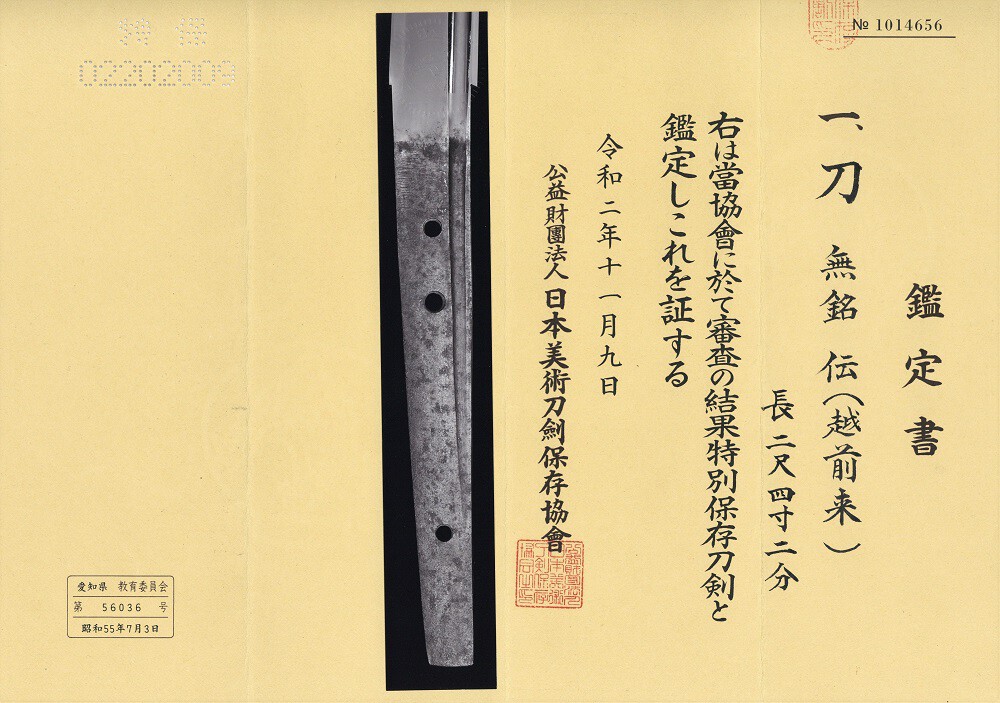 № 1014656
鑑定書
一、刀 無銘 伝(越前来)
長二尺四寸二分
右は當協會に於て審査の結果特別保存刀剣と
鑑定しこれを証する
令和二年十一月九日
公益財團法人 日本美術刀劍保存協會
特保
02202009
愛知県 教育委員会
第 56036 号
昭和55年7月3日